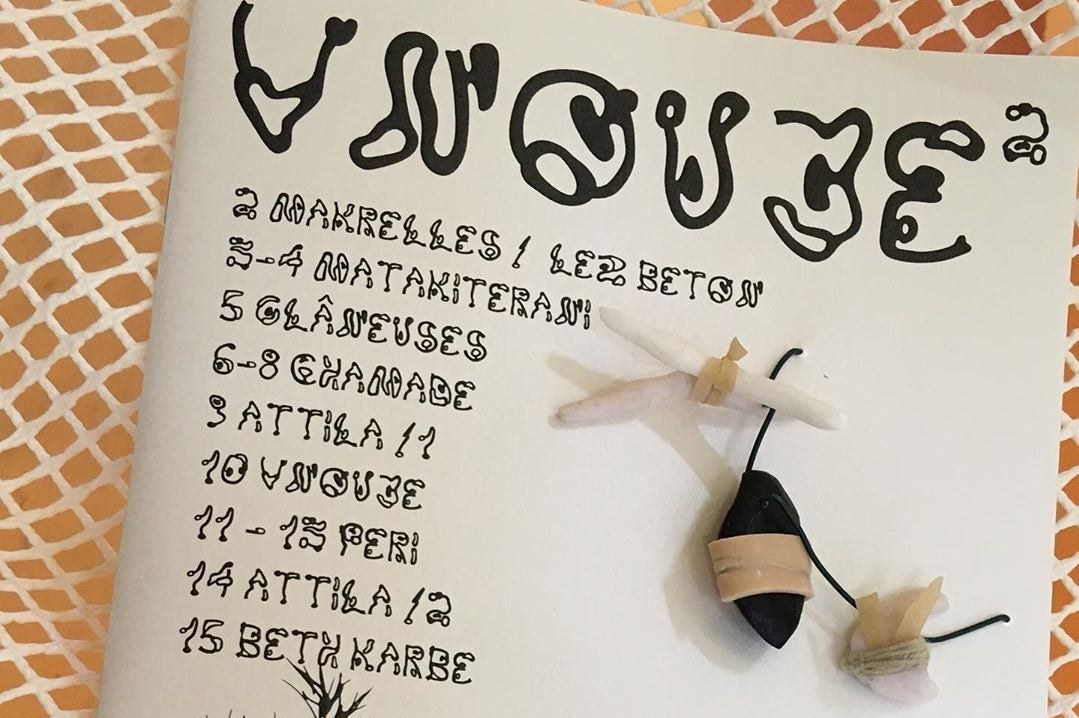 VNOUJE²
2 MAKRELLES / LEZ BETON
3-4 MATAKITERANI
5 GLÂNEUSES
6-8 CHAMADE
9 ATTILA /1
10 VNOUJE
11 - 13 PERI
14 ATTILA /2
15 BETH KARBE